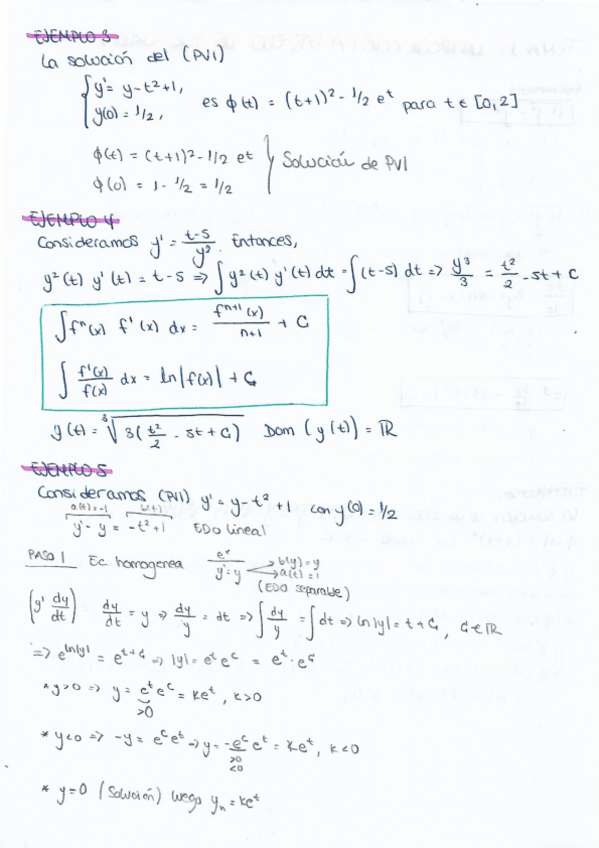 EJEMPLO 3
La solución del (PVI)
{ y' = y - t² + 1,
y(0) = 1/2, es ϕ(t) = (t+1)² - 1/2 eᵗ para t ∈ [0,2]
ϕ(t) = (t+1)² - 1/2 et } Solución de PVI
ϕ(0) = 1 - 1/2 = 1/2
EJEMPLO 4
Consideramos y' = (t-5)/y². Entonces,
y²(t) y'(t) = t-5 => ∫ y²(t) y'(t) dt = ∫ (t-5) dt => y³/3 = t²/2 - 5t + C
∫ fⁿ(x) f'(x) dx = fⁿ⁺¹(x)/(n+1) + C
∫ f'(x)/f(x) dx = ln|f(x)| + C
y(t) = ³√(3(t²/2 - 5t + C)) Dom (y(t)) = ℝ
EJEMPLO 5
Consideramos (PVI) y' = y - t² + 1 con y(0) = 1/2
a(t) = -1 b(t)
y' - y = -t² + 1 EDO lineal
PASO 1 Ec homogenea y' = y → b(y) = y
→ a(t) = 1
(EDO separable)
(y' dy/dt) dy/dt = y => dy/y = dt => ∫ dy/y = ∫ dt => ln|y| = t + C, C ∈ ℝ
=> e^(ln|y|) = e^(t+C) => |y| = eᵗ e^C = eᵗ · e^C
* y>0 => y = eᵗ e^C = keᵗ, k>0
>0
* y<0 => -y = e^C eᵗ => y = -e^C eᵗ = keᵗ, k<0
>0
<0
* y=0 (Solución) luego yₕ = keᵗ